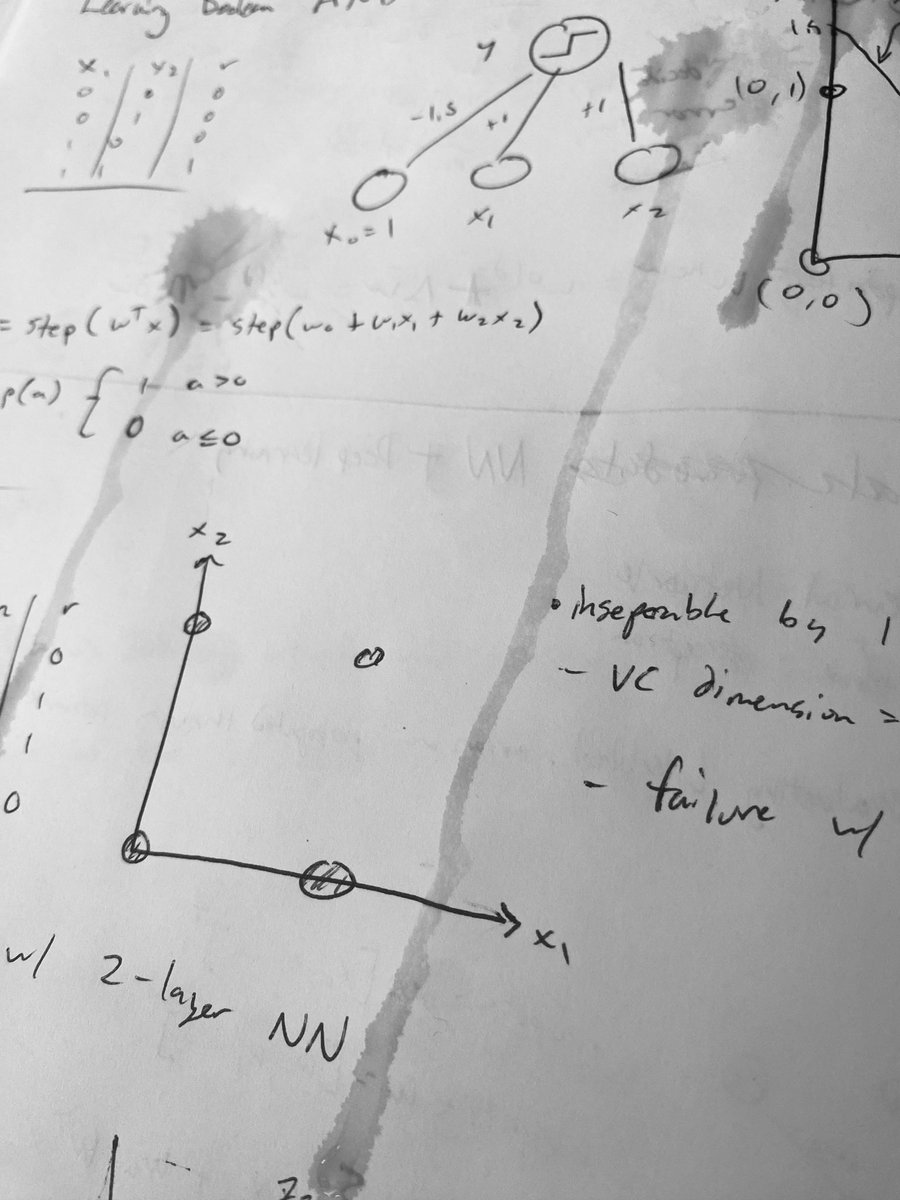 Learning Boolean AND
x₁ x₂ r
0 0 0
0 1 0
1 0 0
1 1 1
y
-1.5 +1 +1
x₀=1 x₁ x₂
1.5
(0,1)
(0,0)
= step(wᵀx) = step(w₀ + w₁x₁ + w₂x₂)
p(a) { 1 a>0
0 a≤0
r
0
1
1
0
x₂
x₁
• inseparable by 1
- VC dimension =
- failure w/
w/ 2-layer NN